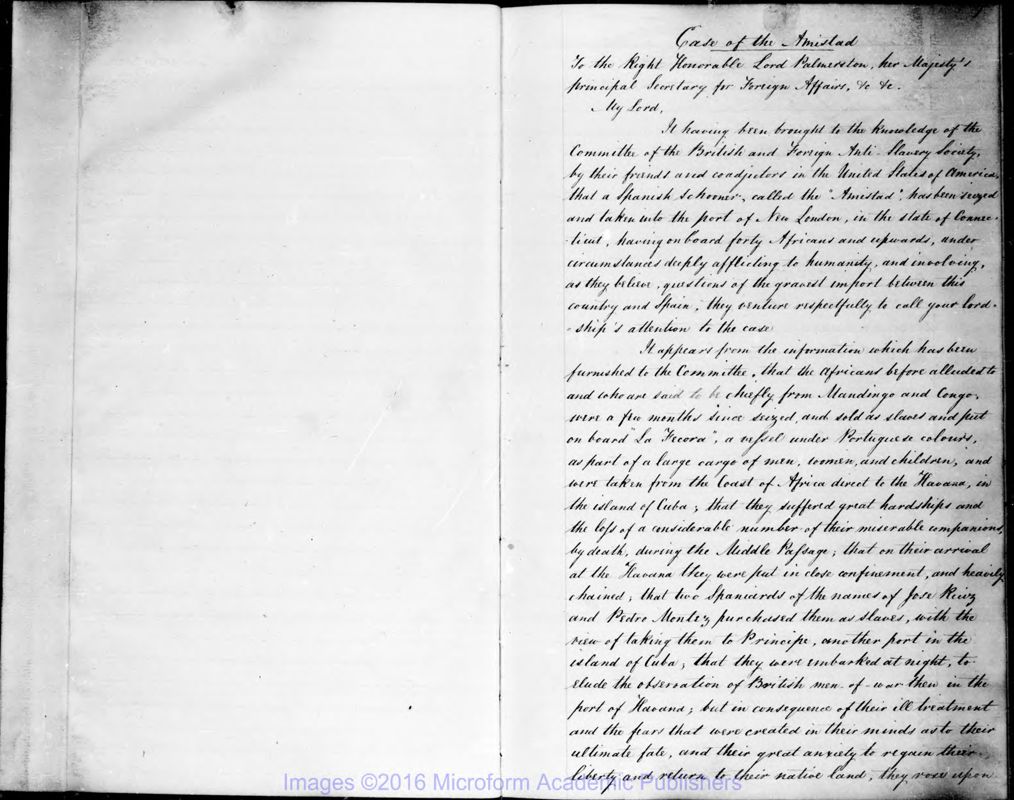 Case of the Amistad
To the Right Honorable Lord Palmerston, her Majesty's
principal Secretary for Foreign Affairs, &c &c.
My Lord,
It having been brought to the knowledge of the
Committee of the British and Foreign Anti-Slavery Society,
by their friends and coadjutors in the United States of America,
that a Spanish Schooner, called the "Amistad", has been seized
and taken into the port of New London, in the state of Connec-
-ticut, having on board forty Africans and upwards, under
circumstances deeply afflicting to humanity, and involving,
as they believe, questions of the gravest import between this
country and Spain, they venture respectfully to call your lord-
-ship's attention to the case
It appears from the information which has been
furnished to the Committee, that the Africans before alluded to
and who are said to be chiefly from Mandingo and Congo,
were a few months since seized, and sold as slaves and put
on board "La Tecora", a vessel under Portuguese colours,
as part of a large cargo of men, women, and children, and
were taken from the Coast of Africa direct to the Havana, in
the island of Cuba; that they suffered great hardships and
the loss of a considerable number of their miserable companions,
by death, during the Middle Passage; that on their arrival
at the Havana they were put in close confinement, and heavily
chained; that two Spaniards of the names of Jose Ruiz
and Pedro Montez purchased them as slaves, with the
view of taking them to Principe, another port in the
island of Cuba; that they were embarked at night, to
elude the observation of British men-of-war then in the
port of Havana; but in consequence of their ill treatment
and the fears that were created in their minds as to their
ultimate fate, and their great anxiety to regain their
liberty and return to their native land, they rose upon
Images ©2016 Microform Academic Publishers